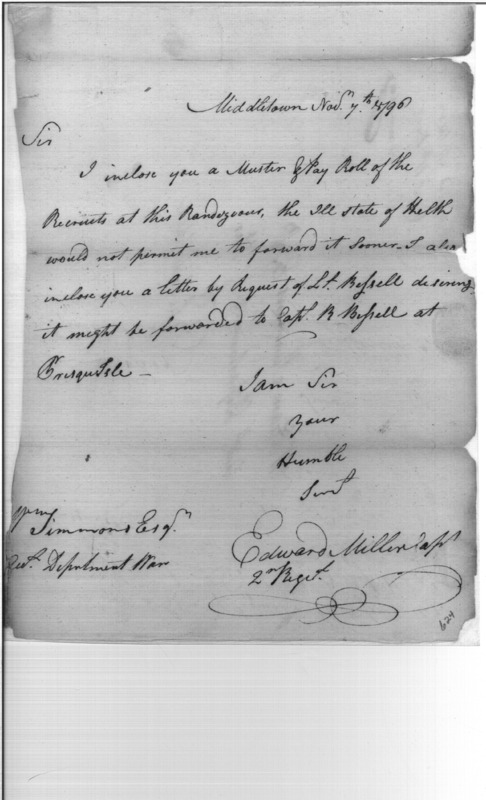 Middletown Novr. 7th. 1796
Sir
I inclose you a Muster & Pay Roll of the
Recruits at this Randezvous, the Ill state of Helth
would not permit me to forward it Sooner. I also
inclose you a letter by Request of Lt. Bissell desireing
it might be forwarded to Capt. R Bissell at
Presqu Isle —
I am Sir
Your
Humble
Servt
Wm Simmons Esqr.
Acct. Depntment War
Edward Miller Capt
2nd Regt.
624